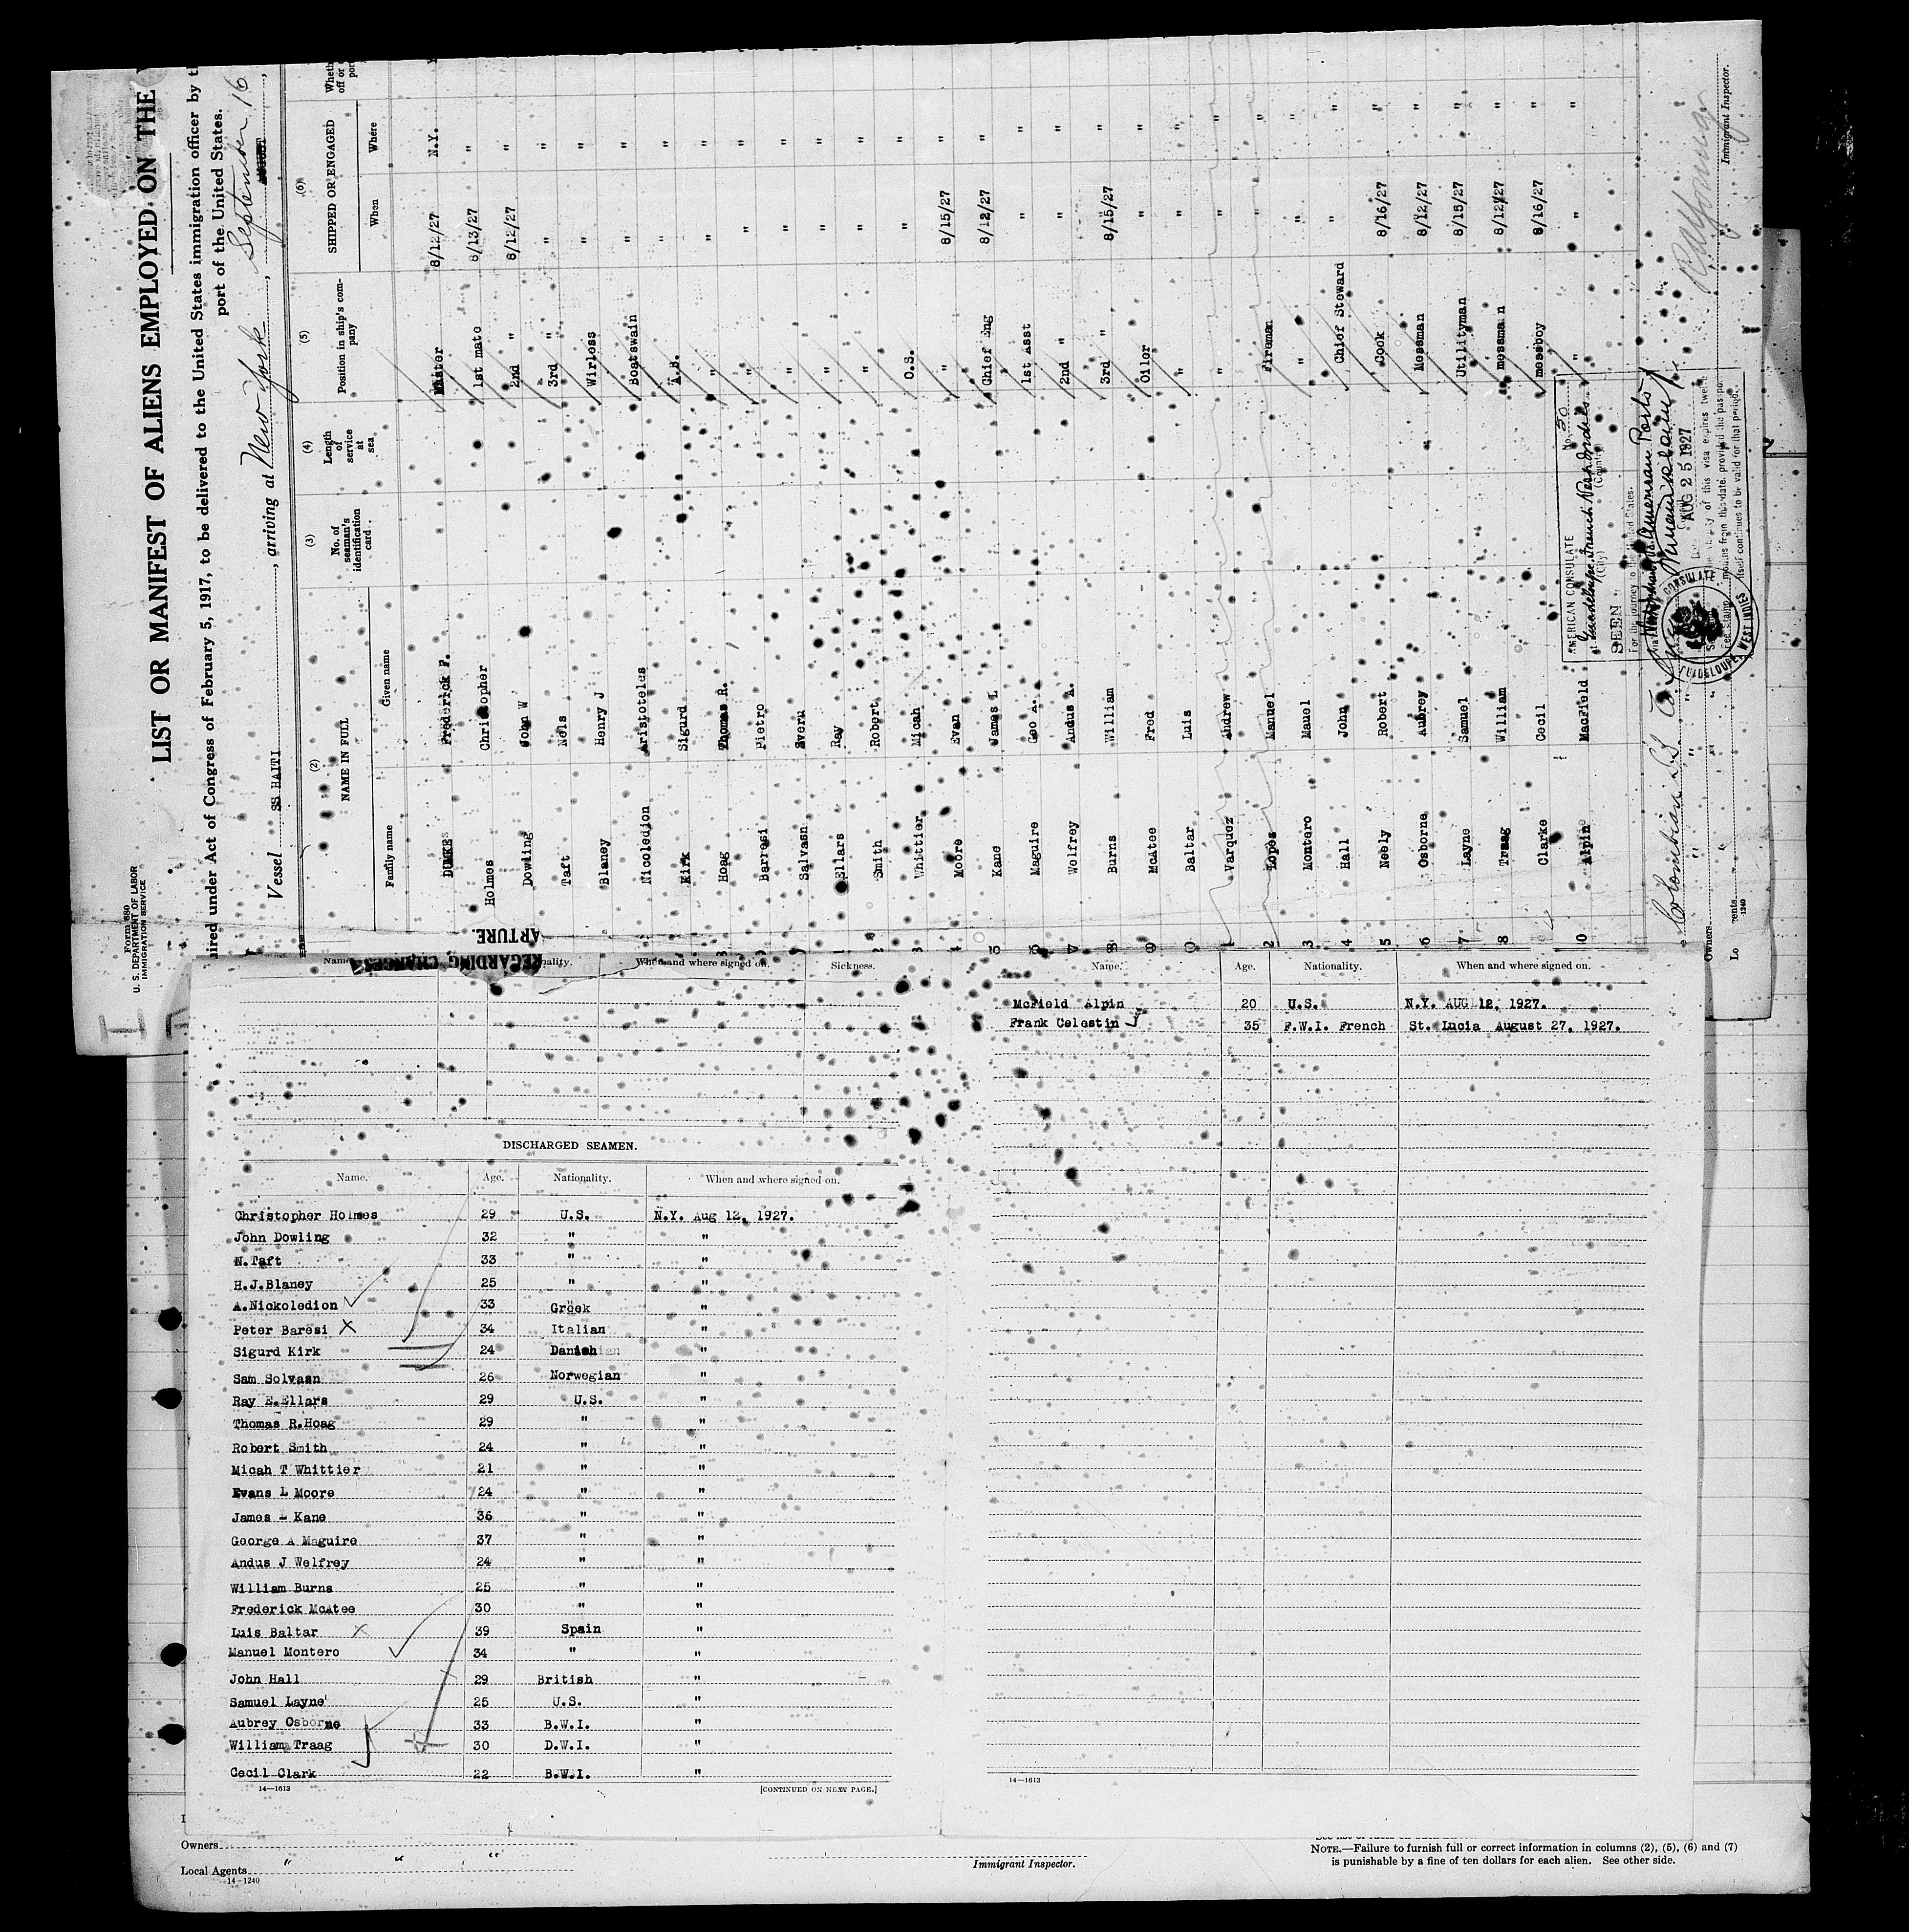 Form 680
U. S. DEPARTMENT OF LABOR
IMMIGRATION SERVICE
LIST OR MANIFEST OF ALIENS EMPLOYED ON THE
uired under Act of Congress of February 5, 1917, to be delivered to the United States immigration officer by t
port of the United States.
Vessel SS HAITI, arriving at New York, September 16,
(2) (3) (4) (5) (6)
NAME IN FULL No. of seaman's identification card Length of service at sea Position in ship's company SHIPPED OR ENGAGED Wheth off or port
Family name Given name When Where
Frederick F. Master 8/12/27 N.Y.
Holmes Christopher 1st mate 8/13/27 "
Dowling John W 2nd " 8/12/27 "
Taft Nels 3rd " " "
Blaney Henry J Wirless " "
Nicoledion Aristotelus Boatswain " "
Kirk Sigurd A.B. " "
Hoag Thomas R. " " "
Barresi Pietro " " "
Salvasn Sveru " " "
Ellars Ray " " "
Smith Robert " " "
Whittier Micah O.S. " "
Moore Evan " 8/15/27 "
Kane James L Chief Eng 8/12/27 "
Maguire Geo A. 1st Asst " "
Welfrey Andus A. 2nd " " "
Burns William 3rd " 8/15/27 "
McAtee Fred Oiler " "
Baltar Luis " " "
Varquez Andrew " " "
Lopez Manuel Fireman " "
Montero Mauel " " "
Hall John Chief Steward " "
Neely Robert Cook 8/16/27 "
Osborne Aubrey Messman 8/12/27 "
Layne Samuel Utilityman 8/15/27 "
Traag William messman 8/12/27 "
Clarke Cecil messboy 8/16/27 "
Alpin MacField " " "
AMERICAN CONSULATE No. 50
Guadeloupe, French West Indies
(City) (Country)
SEEN
For the journey to the United States.
American Ports
AUG 25 1927
The validity of this visa expires twelve
months from this date, provided the passport
itself continues to be valid for that period.
Fee Stamp
GUADELOUPE, WEST INDIES
Colombian S.S. Co. Inc.
Owners
Immigrant Inspector.
1240
REGARDING CHANGES
ARTURE.
Name. When and where signed on. Sickness.
DISCHARGED SEAMEN.
Name. Age. Nationality. When and where signed on.
Christopher Holmes 29 U.S. N.Y. Aug 12, 1927.
John Dowling 32 " "
N.Taft 33 " "
H.J.Blaney 25 " "
A.Nickoledion 33 Greek "
Peter Baresi 34 Italian "
Sigurd Kirk 24 Danish "
Sam Solvasn 26 Norwegian "
Ray E.Ellars 29 U.S. "
Thomas R.Hoag 29 " "
Robert Smith 24 " "
Micah T Whittier 21 " "
Evans L Moore 24 " "
James - Kane 36 " "
George A Maguire 37 " "
Andus J Welfrey 24 " "
William Burns 25 " "
Frederick McAtee 30 " "
Luis Baltar 39 Spain "
Manuel Montero 34 " "
John Hall 29 British "
Samuel Layne 25 U.S. "
Aubrey Osborne 33 B.W.I. "
William Traag 30 D.W.I. "
Cecil Clark 22 B.W.I. "
14—1613 [CONTINUED ON NEXT PAGE.]
Name. Age. Nationality. When and where signed on.
McField Alpin 20 U.S. N.Y. AUG 12, 1927.
Frank Celestin 35 F.W.I. French St. Lucia August 27, 1927.
14—1613
Owners
Local Agents " " "
14-1240
Immigrant Inspector.
NOTE.—Failure to furnish full or correct information in columns (2), (5), (6) and (7)
is punishable by a fine of ten dollars for each alien. See other side.